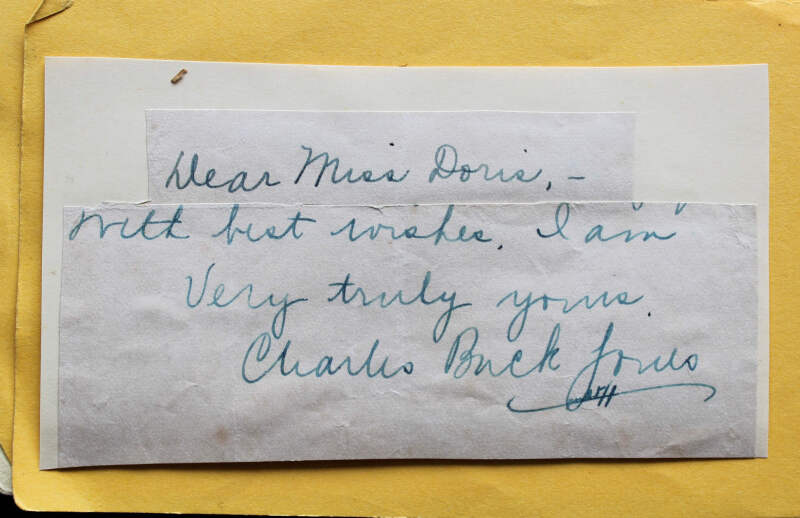 Dear Miss Doris, -
With best wishes. I am
Very truly yours.
Charles Buck Jones